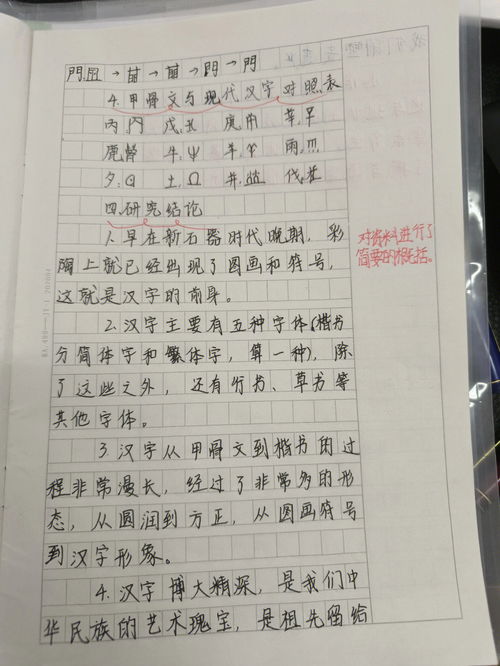 門.→→→閂→門
4.甲骨文与现代汉字对照表
丙 戊 庚 草
鹿 牛 羊 雨
夕 土 井 伐
四.研究结论
1.早在新石器时代晚期，彩
陶上就已经出现了图画和符号，
这就是汉字的前身。
2.汉字主要有五种字体(楷书
分简体字和繁体字，算一种)，除
了这些之外，还有行书、草书等
其他字体。
3.汉字从甲骨文到楷书的过
程非常漫长，经过了非常多的形
态，从圆润到方正，从图画符号
到汉字形象。
4.汉字博大精深，是我们中
华民族的艺术瑰宝，是祖先留给
对资料进行了
简要的概括。